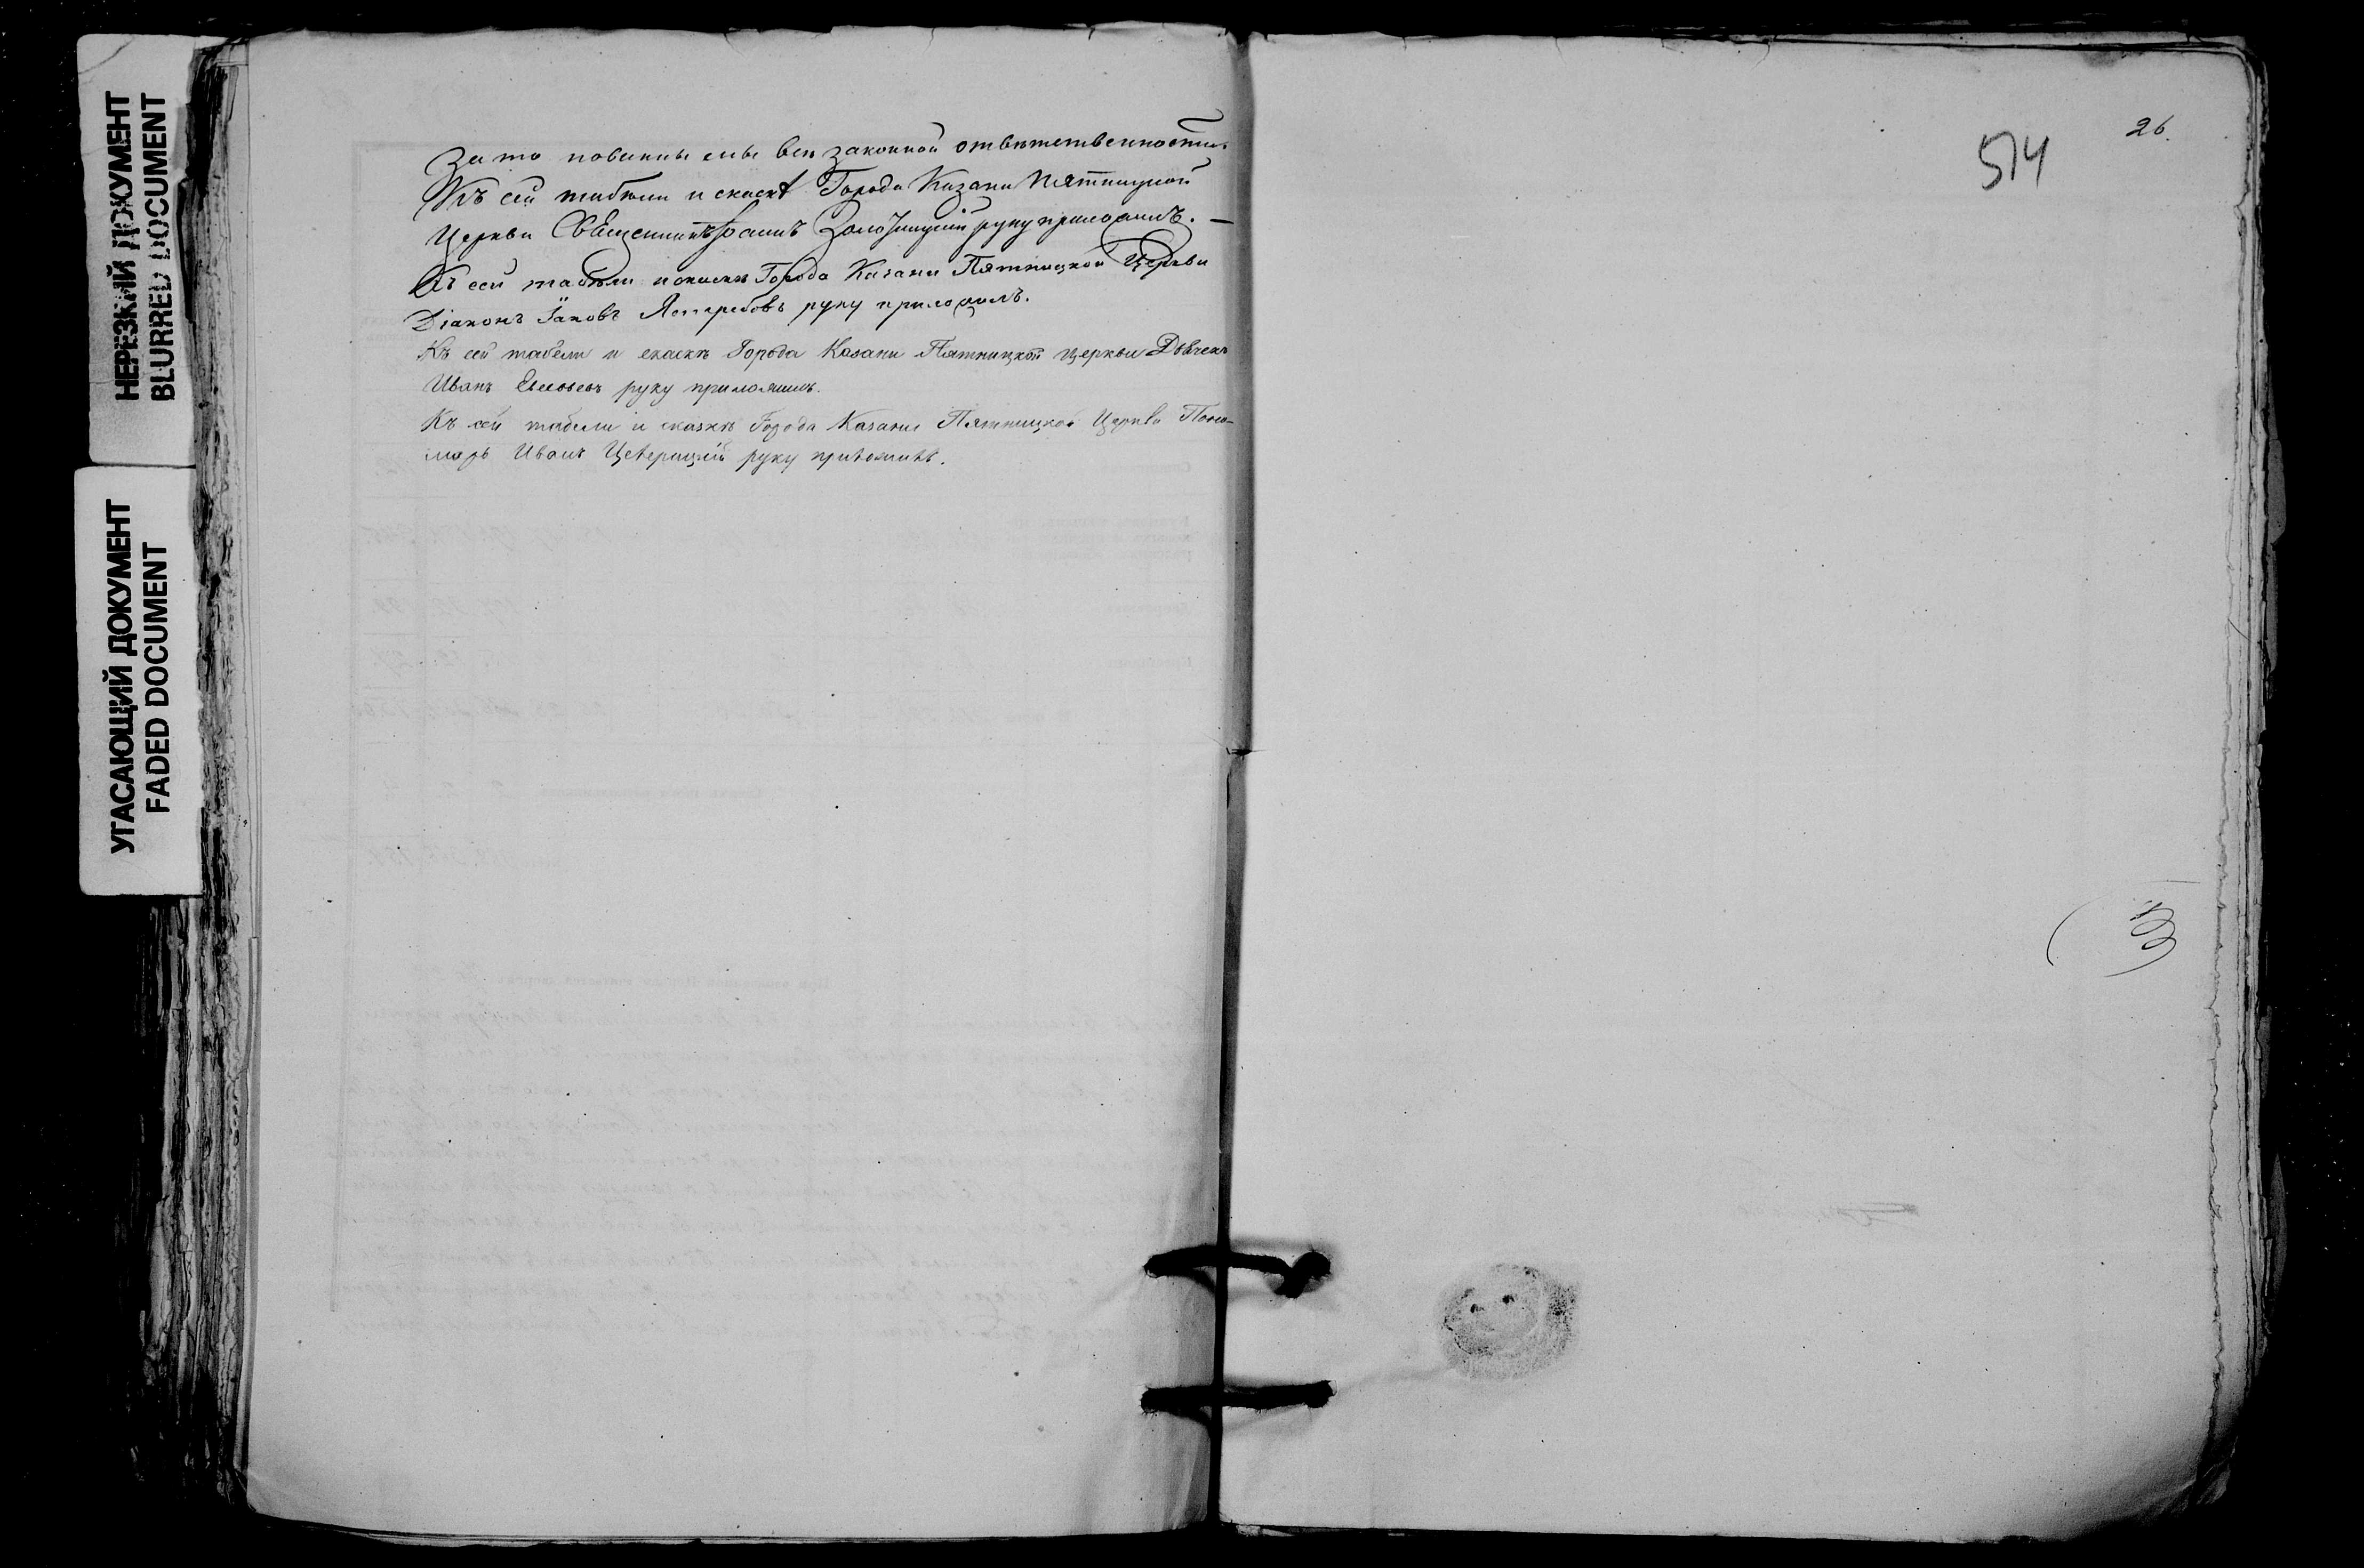 НЕРЕЗКИЙ ДОКУМЕНТ
BLURRED DOCUMENT
УГАСАЮЩИЙ ДОКУМЕНТ
FADED DOCUMENT
За то повинны законной отвѣтственности
Къ сей табели и скаскѣ Города Казани Пятницкой
Церкви Священникъ Іоаннъ руку приложилъ. —
Къ сей табели и скаскѣ Города Казани Пятницкой Церкви
Діаконъ Іаковъ Ястребовъ руку приложилъ.
Къ сей табели и скаскѣ Города Казани Пятницкой Церкви Дьячекъ
Иванъ руку приложилъ.
Къ сей табели и сказкѣ Города Казани Пятницкой Церкви Поно-
марь Иванъ руку приложилъ.
26.
514